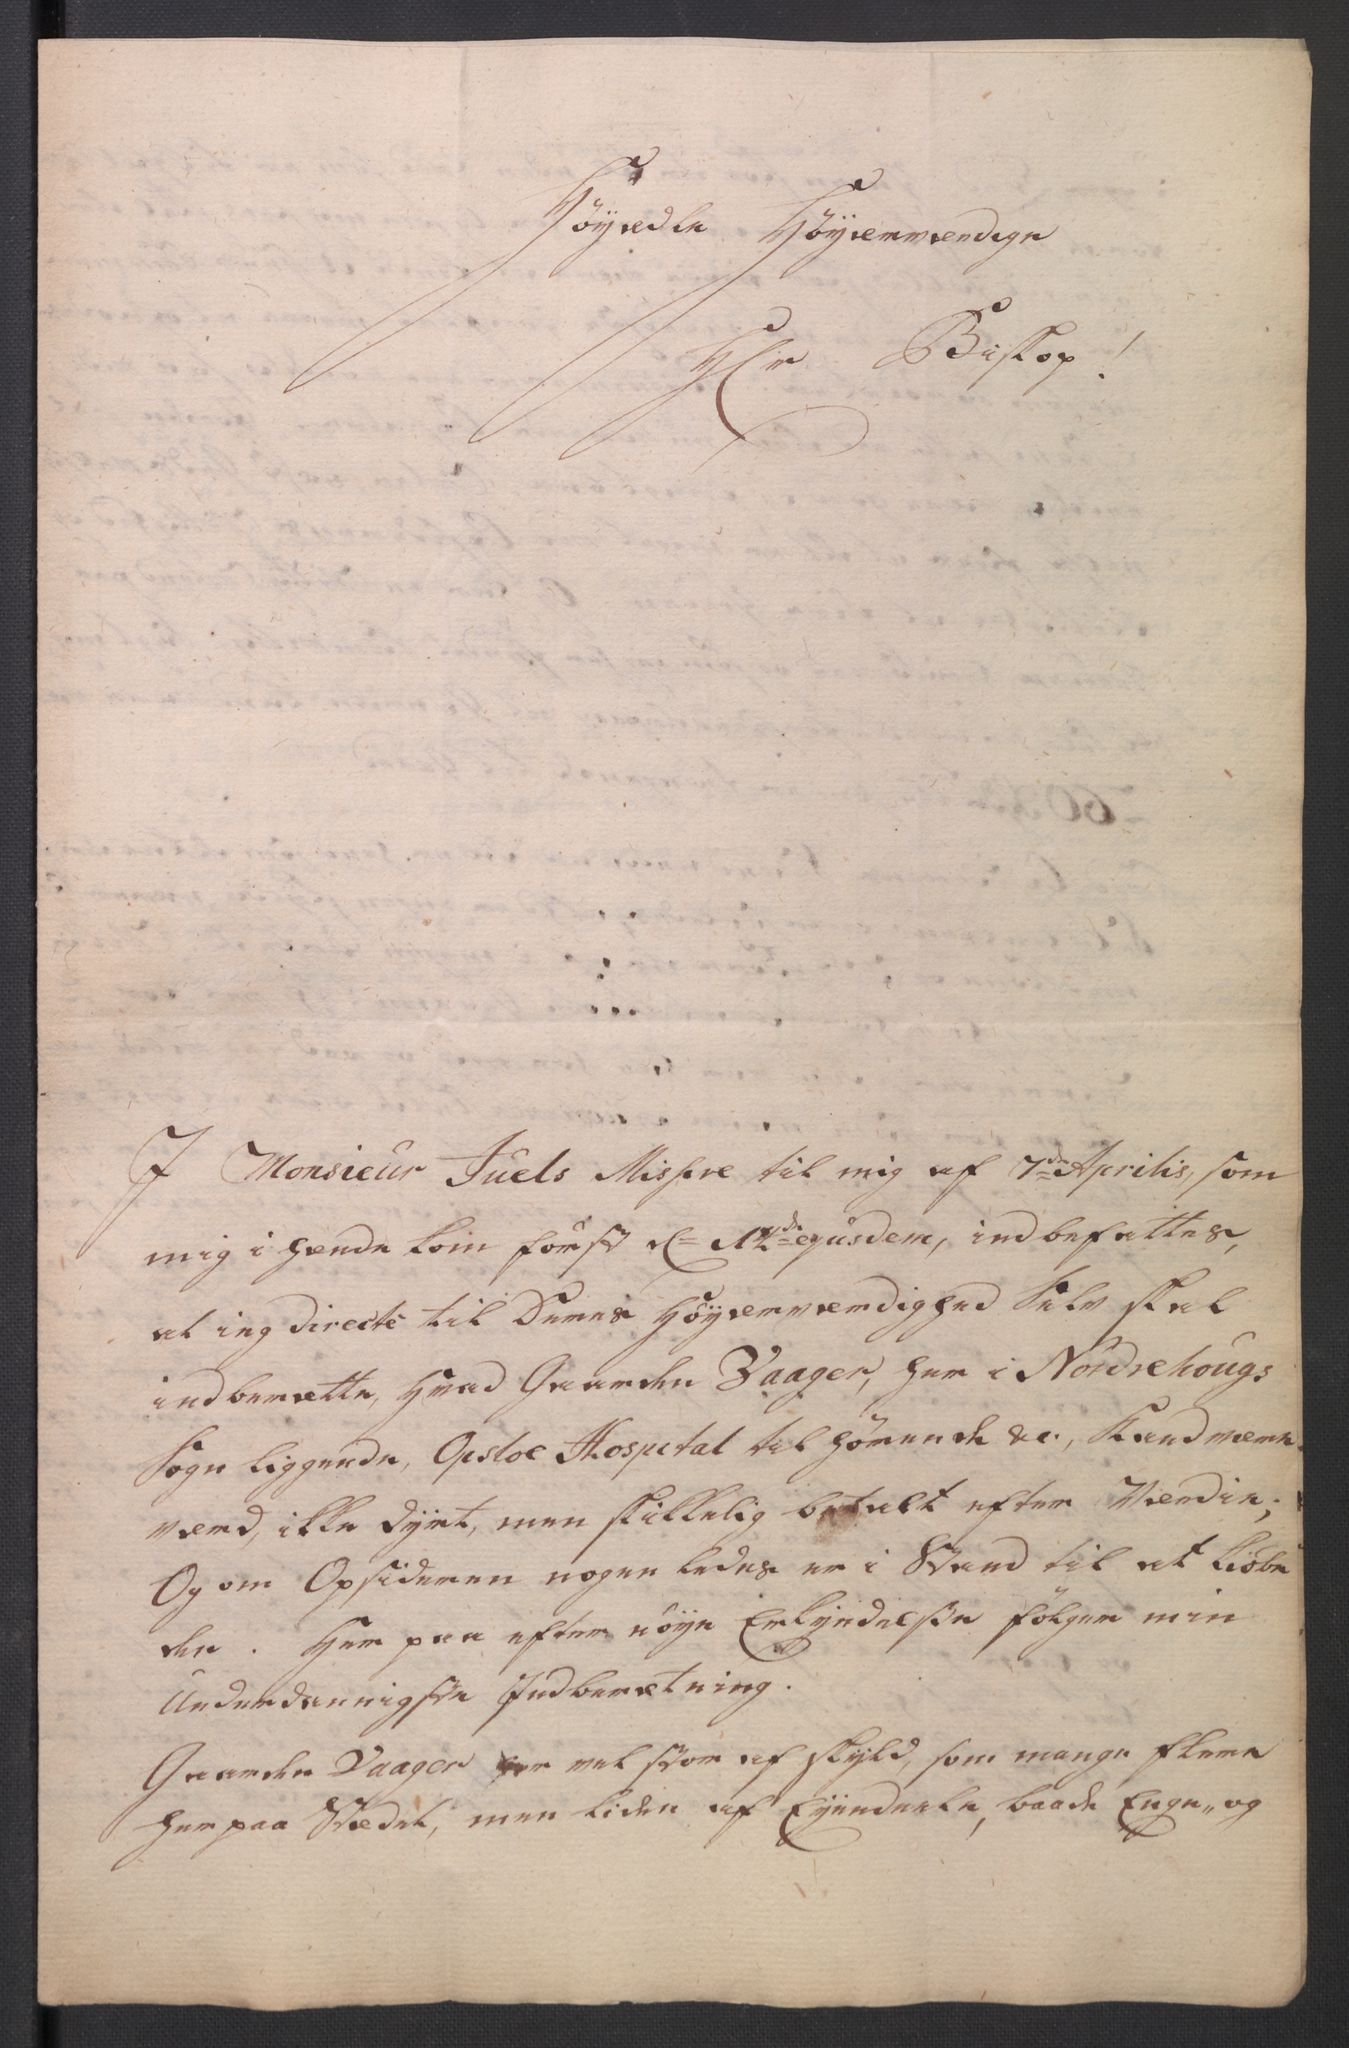 Höyædle Höyærværdige
Hr Biskop!
I Monsieur Juels Missive til mig af 7de Aprilis, som
mig i hænde kom först d. 12de ejusdem, indbefattes,
at ieg directé til Deres Höyærværdighed Selv skal
indberette, hvad Gaarden Vaager, her i Nordrehougs
Sogn liggende, Opsloe Hospital tilhörende &c., Kand være
værd, ikke dyrt, men skikkelig betalt efter Værdie;
Og om Opsideren nogenledes er i Stand til at kiöbe
den. Her paa efter nöye Erkyndelse fölger min
Underdannigste Indberetning.
Gaarden Vaager er vel stor af skyld, som mange flere
her paa Stædet, men liden af Eyendeele, baade Enge, og